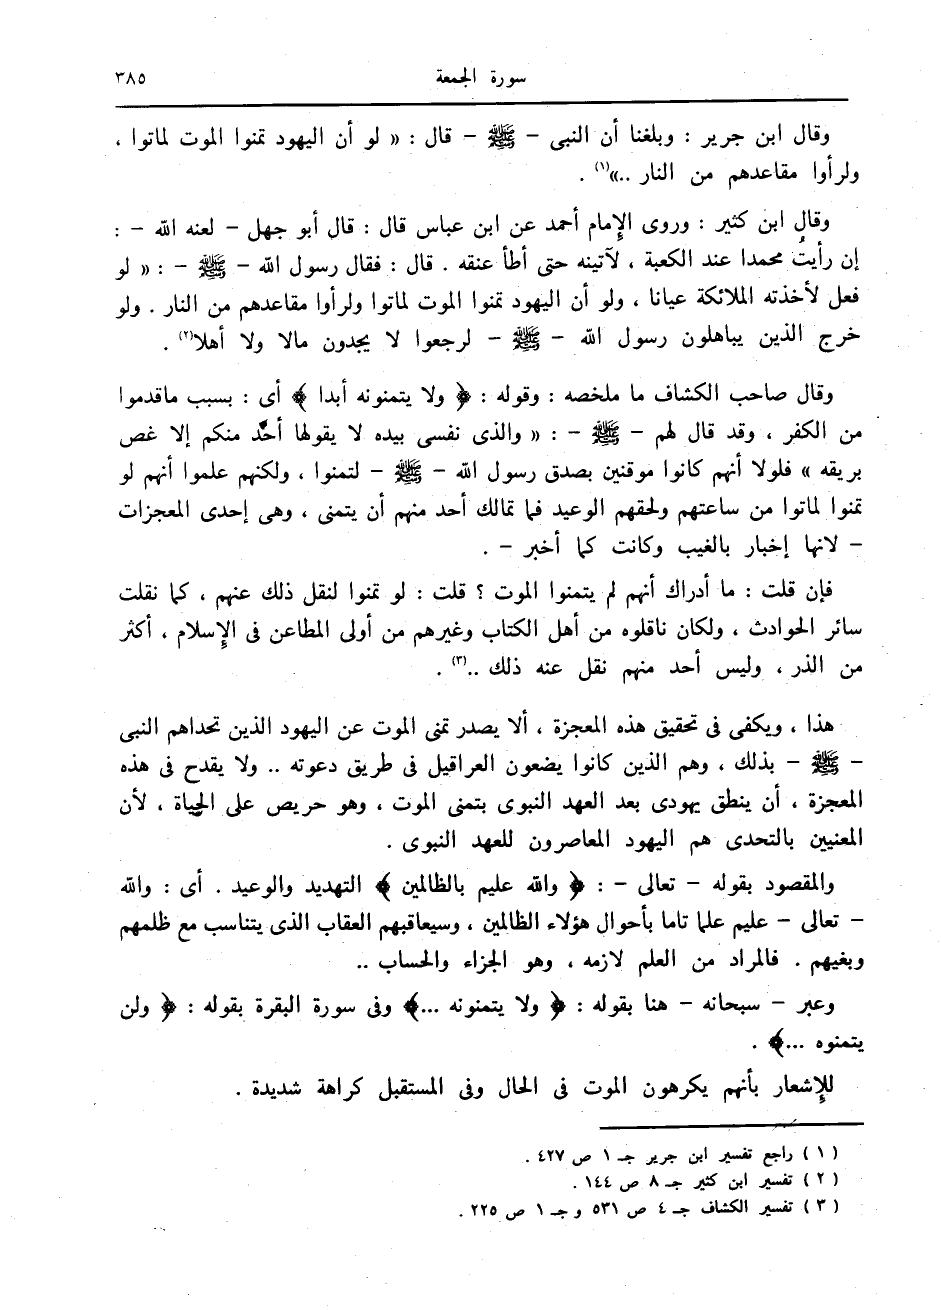 سورة الجمعة ٣٨٥
وقال ابن جرير : وبلغنا أن النبى - ﷺ - قال : « لو أن اليهود تمنوا الموت لماتوا ،
ولرأوا مقاعدهم من النار ..»(١) .
وقال ابن كثير : وروى الإمام أحمد عن ابن عباس قال : قال أبو جهل - لعنه الله - :
إن رأيتُ محمدا عند الكعبة ، لآتينه حتى أطأ عنقه . قال : فقال رسول الله - ﷺ - : « لو
فعل لأخذته الملائكة عيانا ، ولو أن اليهود تمنوا الموت لماتوا ولرأوا مقاعدهم من النار . ولو
خرج الذين يباهلون رسول الله - ﷺ - لرجعوا لا يجدون مالا ولا أهلا(٢) .
وقال صاحب الكشاف ما ملخصه : وقوله : ﴿ ولا يتمنونه أبدا ﴾ أى : بسبب ماقدموا
من الكفر ، وقد قال لهم - ﷺ - : « والذى نفسى بيده لا يقولها أحد منكم إلا غص
بريقه » فلولا أنهم كانوا موقنين بصدق رسول الله - ﷺ - لتمنوا ، ولكنهم علموا أنهم لو
تمنوا لماتوا من ساعتهم ولحقهم الوعيد فما تمالك أحد منهم أن يتمنى ، وهى إحدى المعجزات
- لانها إخبار بالغيب وكانت كما أخبر - .
فإن قلت : ما أدراك أنهم لم يتمنوا الموت ؟ قلت : لو تمنوا لنقل ذلك عنهم ، كما نقلت
سائر الحوادث ، ولكان ناقلوه من أهل الكتاب وغيرهم من أولى المطاعن فى الإسلام ، أكثر
من الذر ، وليس أحد منهم نقل عنه ذلك ..(٣) .
هذا ، ويكفى فى تحقيق هذه المعجزة ، ألا يصدر تمنى الموت عن اليهود الذين تحداهم النبى
- ﷺ - بذلك ، وهم الذين كانوا يضعون العراقيل فى طريق دعوته .. ولا يقدح فى هذه
المعجزة ، أن ينطق يهودى بعد العهد النبوى بتمنى الموت ، وهو حريص على الحياة ، لأن
المعنيين بالتحدى هم اليهود المعاصرون للعهد النبوى .
والمقصود بقوله - تعالى - : ﴿ والله عليم بالظالمين ﴾ التهديد والوعيد . أى : والله
- تعالى - عليم علما تاما بأحوال هؤلاء الظالمين ، وسيعاقبهم العقاب الذى يتناسب مع ظلمهم
وبغيهم . فالمراد من العلم لازمه ، وهو الجزاء والحساب ..
وعبر - سبحانه - هنا بقوله : ﴿ ولا يتمنونه ...﴾ وفى سورة البقرة بقوله : ﴿ ولن
يتمنوه ...﴾ .
للإشعار بأنهم يكرهون الموت فى الحال وفى المستقبل كراهة شديدة .
( ١ ) راجع تفسير ابن جرير جـ ١ ص ٤٢٧ .
( ٢ ) تفسير ابن كثير جـ ٨ ص ١٤٤ .
( ٣ ) تفسير الكشاف جـ ٤ ص ٥٣١ و جـ ١ ص ٢٢٥ .